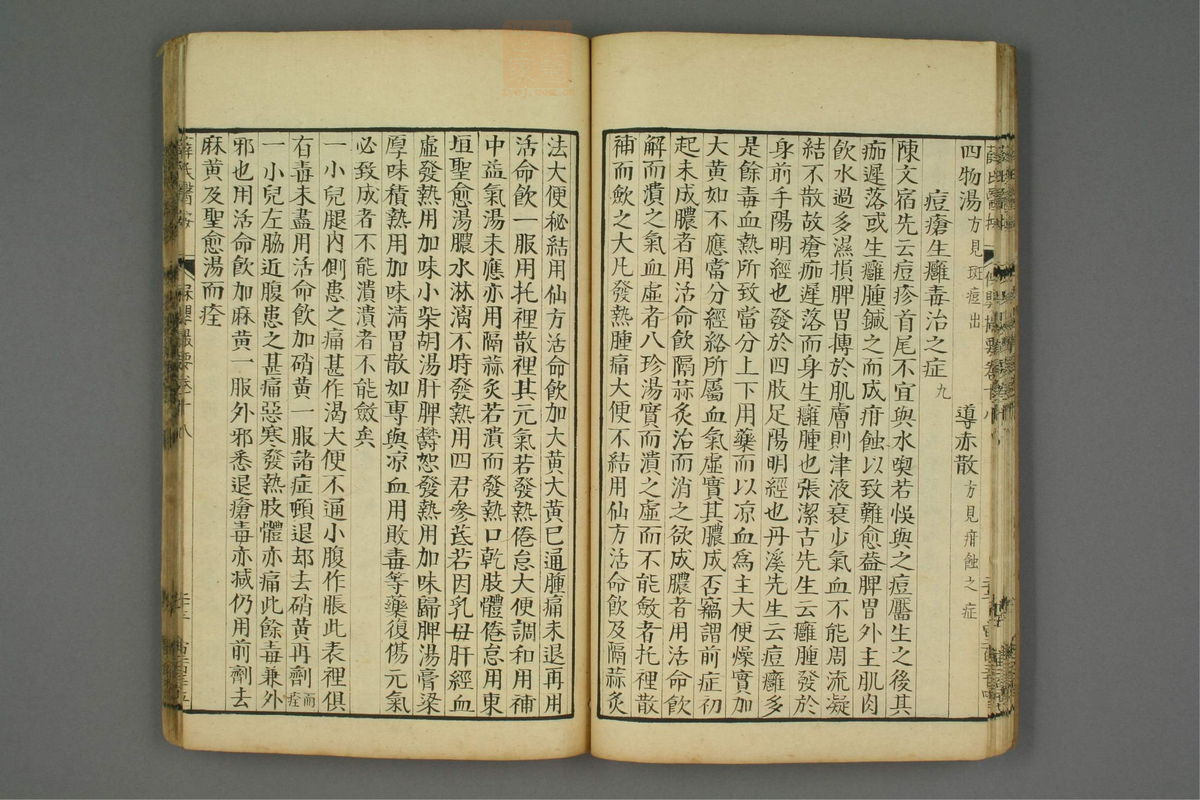 四物湯方見斑痘出 導赤散方見疳蝕之症
痘瘡生癰毒治之症九
陳文宿先云痘疹首尾不宜與水喫若悞與之痘靨生之後其
痂遲落或生癰腫鍼之而成疳蝕以致難愈葢脾胃外主肌肉
飲水過多濕損脾胃搏於肌膚則津液衰少氣血不能周流凝
結不散故瘡痂遲落而身生癰腫也張潔古先生云癰腫發於
身前手陽明經也發於四肢足陽明經也丹溪先生云痘癰多
是餘毒血熱所致當分上下用藥而以凉血為主大便燥實加
大黄如不應當分經絡所屬血氣虛實其膿成否竊謂前症初
起未成膿者用活命飲隔蒜灸治而消之欲成膿者用活命飲
解而潰之氣血虛者八珍湯實而潰之虛而不能斂者托裡散
補而歛之大凡發熱腫痛大便不結用仙方活命飲及隔蒜灸
法大便秘結用仙方活命飲加大黄大黄巳通腫痛未退再用
活命飲一服用托裡散裡其元氣若發熱倦怠大便調和用補
中益氣湯未應亦用隔蒜灸若潰而發熱口乾肢體倦怠用東
垣聖愈湯膿水淋漓不時發熱用四君參芪若因乳母肝經血
虛發熱用加味小柴胡湯肝脾鬱怒發熱用加味歸脾湯膏梁
厚味積熱用加味清胃散如專與凉血用敗毒等藥復傷元氣
必致成者不能潰潰者不能斂矣
一小兒腿內側患之痛甚作渴大便不通小腹作脹此表裡俱
有毒未盡用活命飲加硝黄一服諸症頓退却去硝黄再劑而痊
一小兒左脇近腹患之甚痛惡寒發熱肢體亦痛此餘毒兼外
邪也用活命飲加麻黄一服外邪悉退瘡毒亦减仍用前劑去
麻黄及聖愈湯而痊